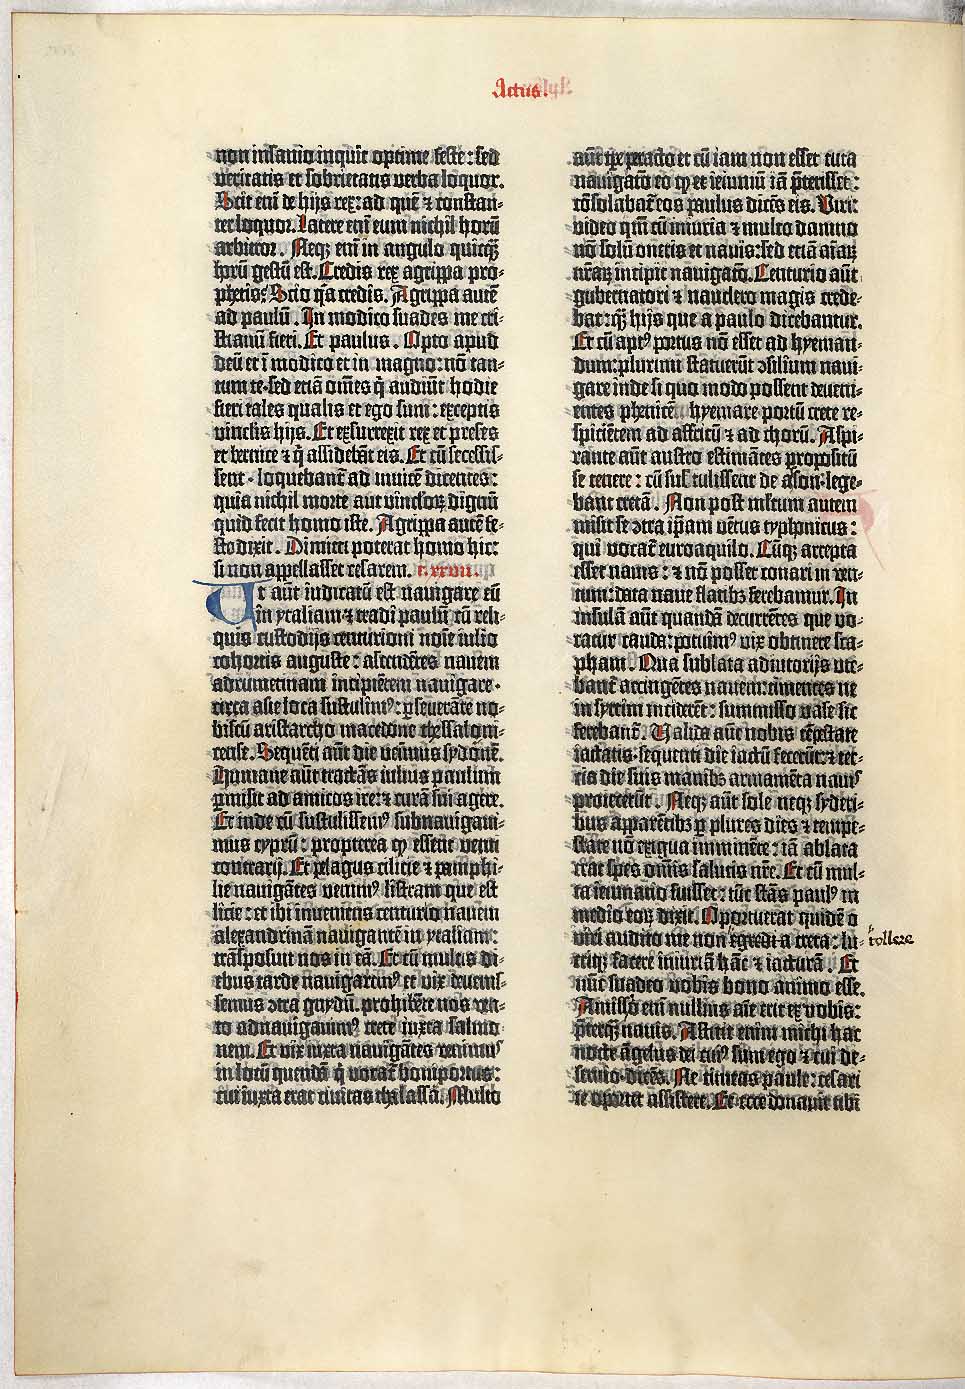 Actus.
non insanio inquit optime feste: sed
veritatis et sobrietatis verba loquor.
Scit eni de hijs rex: ad quē ⁊ constan-
ter loquor. Latere eni eum nichil horū
arbitror. Neqꝫ eni in angulo quicqꝫ
horū gestū est. Credis rex agrippa pro-
phetis? Scio qa credis. Agrippa autē
ad paulū. In modico suades me cri-
stianū fieri. Et paulus. Opto apud
deū et ī modico et in magno: nō tan-
tum te·sed etiā om̄es q̄ audiūt hodie
fieri tales qualis et ego sum: exceptis
vinclis hijs. Et exsurrexit rex et preses
et bernice ⁊ q̄ assidebāt eis. Et cū secessis-
sent·loquebant̄ ad inuicē dicentes:
quia nichil morte aut vinclorꝫ dignū
quid fecit homo iste. Agrippa autē fe-
sto dixit. Dimitti poterat homo hic:
si non appellasset cesarem. c. xxvii.
Ut aūt iudicatū est nauigare eū
in ytaliam·⁊ tradi paulū cū reli-
quis custodijs centurioni noīe iulio
cohortis auguste: ascendētes nauem
adrumetinam incipiētem nauigare·
circa asie loca sustulimꝰ: ꝑseuerāte no-
biscū aristarcho macedone thessaloni-
cense. Sequēti aūt die venimus sydonē.
Humane aūt tractās iulius paulum
ꝑmisit ad amicos ire: ⁊ curā sui agere.
Et inde cū sustulissemꝰ subnauigaui-
mus cyprū: propterea qꝫ essent venti
contrarij. Et pelagus cilicie ⁊ pamphi-
lie nauigātes venimꝰ listram que est
licie: et ibi inueniens centurio nauem
alexandrinā nauigantē in ytaliam:
trāsposuit nos in eā. Et cū multis di-
ebus tarde nauigaremꝰ et vix deuenis-
semus ꝯtra gnydū·prohibēte nos ven-
to adnauigauimꝰ crete iuxta salmo-
nem. Et vix iuxta nauigātes venimus
in locū quendā q̄ vocat̄ boniportus:
cui iuxta erat ciuitas thalassā. Multo
aūt tꝑe peracto et cū iam non esset tuta
nauigatō eo qꝫ et ieiuniū iā p̄terisset:
cōsolabat̄ eos paulus dicēs eis. Viri
video qm̄ cū iniuria ⁊ multo damno
nō solū oneris et nauis: sed etiā aīarꝫ
nr̄arꝫ incipit nauigatō. Centurio aūt
gubernatori ⁊ nauclero magis crede-
bat: qꝫ hijs que a paulo dicebantur.
Et cū aptꝰ portus nō esset ad hyeman-
dum: plurimi statuerūt ꝯsilium naui-
gare inde si quo modo possent deueni-
entes phenicē hyemare portū crete re-
spiciētem ad affricū ⁊ ad chorū. Aspi-
rante aūt austro estimātes propositū
se tenere: cū sustulissent de ason·lege-
bant cretā. Non post multum autem
misit se ꝯtra ipam ventus typhonicus:
qui vocat̄ euroaquilo. Cūqꝫ arrepta
esset nauis: ⁊ nō posset conari in ven-
tum: data naue flatibꝫ ferebamur. In
insulā aūt quandā decurrētes que vo-
catur cauda: potuimꝰ vix obtinere sca-
pham. Qua sublata adiutorijs ute-
bant̄ accingētes nauem: timentes ne
in syrtim inciderēt: summisso vase sic
ferebant̄. Valida aūt nobis tēpestate
iactatis·sequenti die iactū fecerūt: ⁊ ter-
tia die suis manibꝫ armamēta nauis
proiecerūt. Neqꝫ aūt sole neqꝫ syderi-
bus apparētibꝫ ꝑ plures dies ⁊ tempe-
state nō exigua imminēte: iā ablata
erat spes omīs salutis nr̄e. Et cū mul-
ta ieiunatio fuisset: tūc stās paulꝰ in
medio eorꝫ dixit. Oportuerat quidē o
viri audito me non egredi a creta: lu-
tollere
criqꝫ facere iniuriā hāc ⁊ iacturā. Et
nūc suadeo vobis bono animo esse.
Amissio eni nullius aīe erit ex vobis:
p̄terqꝫ nauis. Astitit enim michi hac
nocte āgelus dei cuiꝰ sum ego ⁊ cui de-
seruio·dicēs. Ne timeas paule: cesari
te oportet assistere. Et ecce donauit tibi